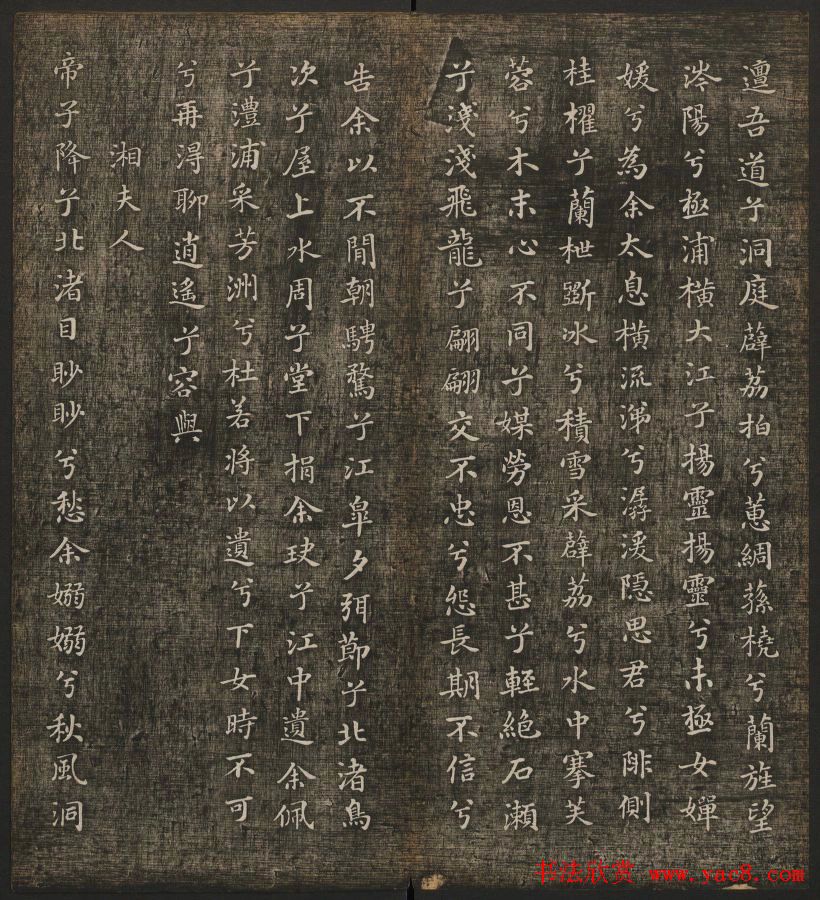 邅吾道兮洞庭薜荔拍兮蕙綢蓀橈兮蘭旌望
涔陽兮極浦橫大江兮揚靈揚靈兮未極女嬋
媛兮為余太息橫流涕兮潺湲隱思君兮陫側
桂櫂兮蘭枻斲冰兮積雪采薜荔兮水中搴芙
蓉兮木末心不同兮媒勞恩不甚兮輕絕石瀨
兮淺淺飛龍兮翩翩交不忠兮怨長期不信兮
告余以不閒朝騁騖兮江皐夕弭節兮北渚鳥
次兮屋上水周兮堂下捐余玦兮江中遺余佩
兮澧浦采芳洲兮杜若將以遺兮下女時不可
兮再得聊逍遙兮容與
湘夫人
帝子降兮北渚目眇眇兮愁余嫋嫋兮秋風洞
书法欣赏 www.yac8.com